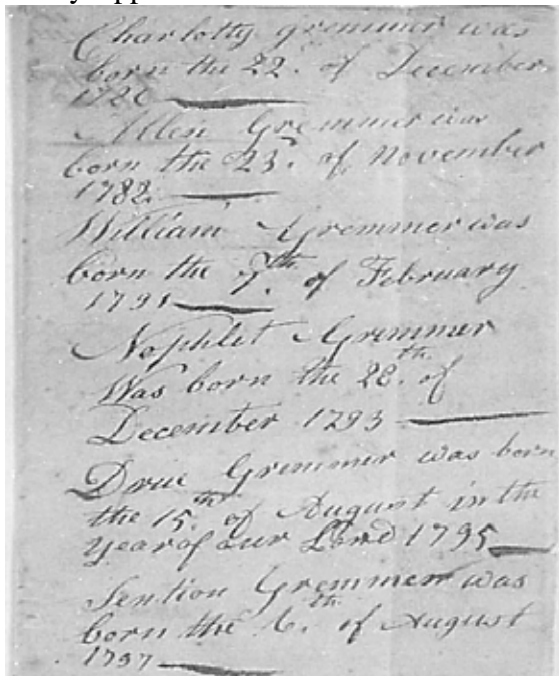 Charlotty Gremmer was
born the 22. of December
178
Allen Gremmer was
born the 23. of November
1788
William Gremmer was
born the 7.th of February
1791
Nophlet Gremmer
Was born the 28.th of
December 1793
Drue Gremmer was born
the 15.th of August in the
Year of our Lord 1795
Gremmer was
born the 6.th of August
1797